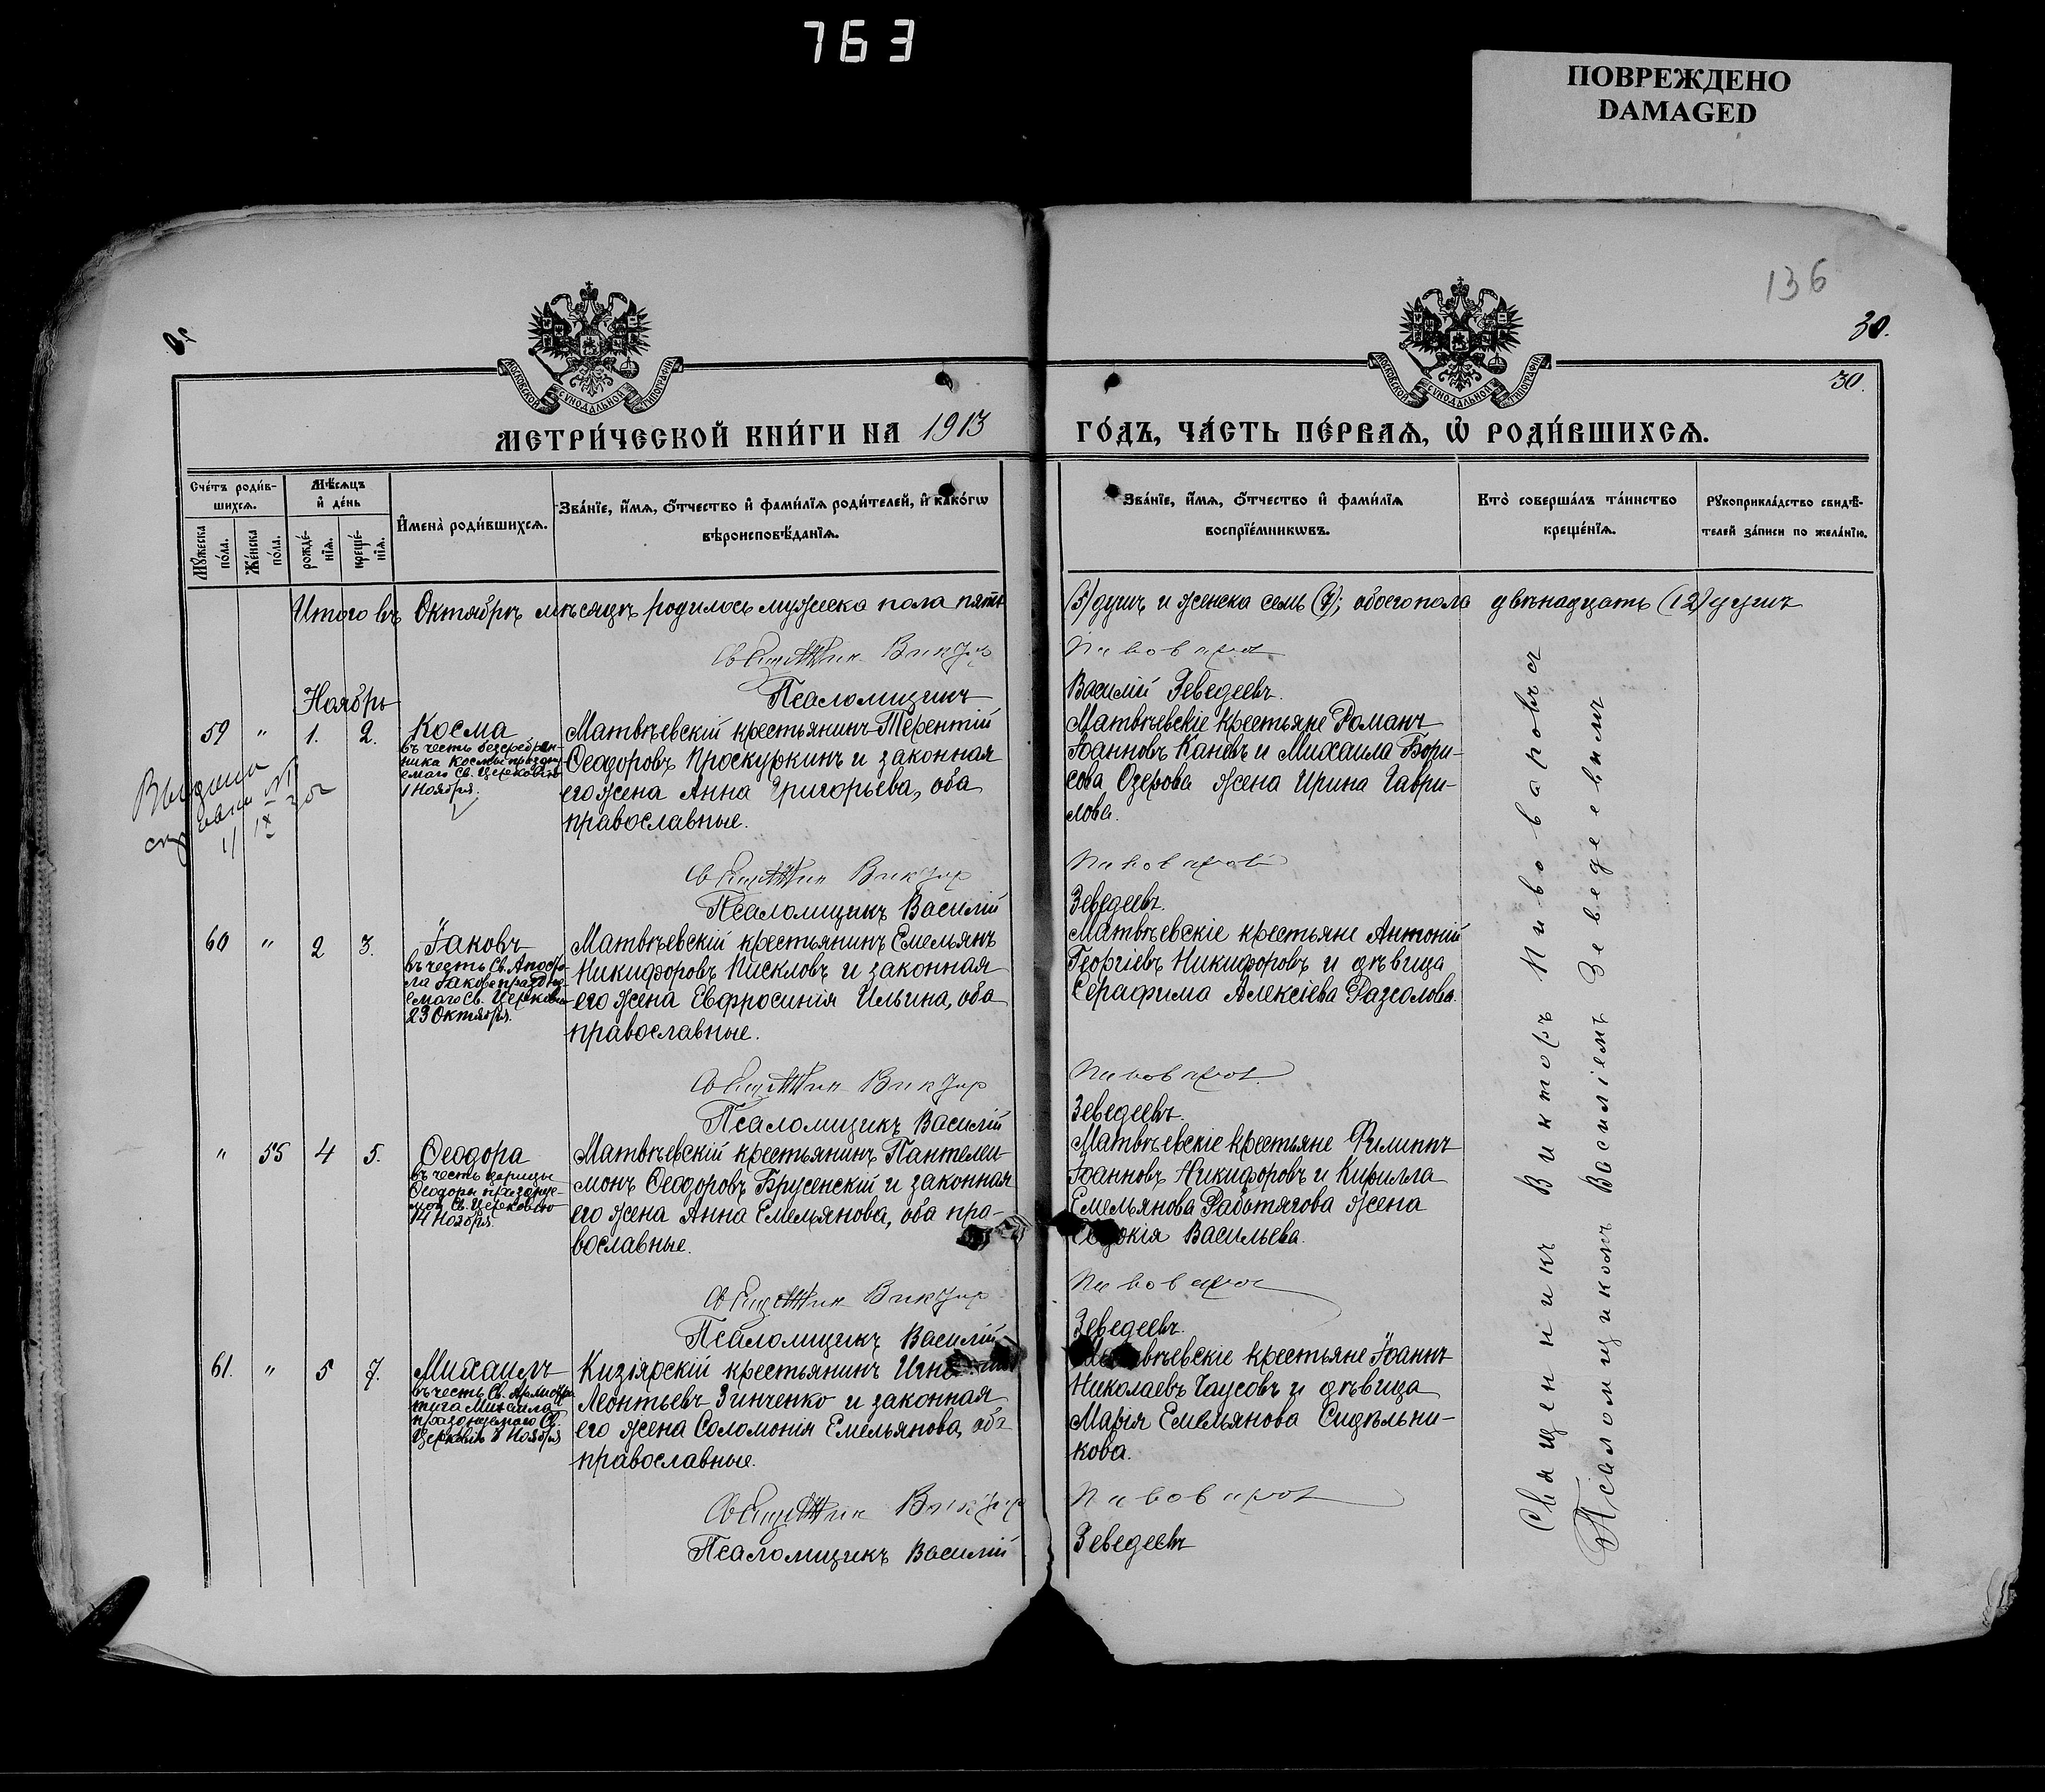 763
ПОВРЕЖДЕНО
DAMAGED
136
30.
30.
МОСКОВСКОЙ СУНОДАЛЬНОЙ ТИПОГРАФІИ
МОСКОВСКОЙ СУНОДАЛЬНОЙ ТИПОГРАФІИ
МЕТРИ́ЧЕСКОЙ КНИ́ГИ НА 1913 ГО́ДЪ, ЧА́СТЬ ПЕ́РВАѦ, Ѡ РОДИ́ВШИХСѦ.
Сче́тъ роди́в-
шихсѧ.
Мꙋжеска по́ла.
Же́нска по́ла.
Мѣ́сѧцъ
и҆ де́нь
рожде́-нїѧ.
креще́-нїѧ.
И҆мена̀ роди́вшихсѧ.
Зва́нїе, и҆́мѧ, ѻ҆́тчество и҆ фами́лїѧ роди́телей, и҆ како́гѡ
вѣроисповѣ́данїѧ.
Зва́нїе, и҆́мѧ, ѻ҆́тчество и҆ фами́лїѧ
воспрїе́мникѡвъ.
Кто̀ соверша́лъ та́инство
креще́нїѧ.
Рꙋкоприкла́дство свидѣ́-
телей за́писи по жела́нїю.
Итого въ Октябрѣ мѣсяцѣ родилось мужеска пола пять (5) душъ и женска семь (7); обоего пола двѣнадцать (12) душъ
Священник Виктор Пивоваров
Псаломщикъ Василій Зеведеевъ.
Ноябрь
59 " 1. 2. Косма
въ честь безсребрен-
ника Космы праздну-
емаго Св. Церковію
1 Ноября.
Матвѣевскій крестьянинъ Терентій
Ѳеодоровъ Проскуркинъ и законная
его жена Анна Григорьева, оба
православные.
Матвѣевскіе крестьяне Романъ
Іоанновъ Каневъ и Михаила Бори-
сова Озерова жена Ирина Гаври-
лова.
Выдана
Священник Виктор Пивоваров
Псаломщикъ Василій Зеведеевъ.
60 " 2 3. Іаковъ
въ честь Св. Апосто-
ла Іакова праздну-
емаго Св. Церковію
23 Октября.
Матвѣевскій крестьянинъ Емельянъ
НикифоровъПискловъ и законная
его жена Евфросинія Ильина, оба
православные.
Матвѣевскіе крестьяне Антоній
Георгіевъ Никифоровъ и дѣвица
Серафима Алексіева Разсолова.
Священник Виктор Пивоваров
Псаломщикъ Василій Зеведеевъ.
" 55 4 5. Ѳеодора
въ честь царицы
Ѳеодоры празднуе-
мой Св. Церковію
14 Ноября.
Матвѣевскій крестьянинъ Пантелеи-
монъ Ѳеодоровъ Брусенскій и законная
его жена Анна Емельянова, оба пра-
вославные.
Матвѣевскіе крестьяне Филиппъ
Іоанновъ Никифоровъ и Кирилла
Емельянова Работягова жена
Васильева.
Священник Виктор Пивоваров
Псаломщикъ Василій Зеведеевъ.
61. " 5 7. Михаилъ
въ честь Св. Архистра-
тига Михаила
празднуемаго Св.
Церковію 8 Ноября
Кизіярскій крестьянинъ
Леонтьевъ Зинченко и законная
его жена Соломонія Емельянова, оба
православные.
крестьяне Іоаннъ
Николаевъ Чаусовъ и дѣвица
Марія Емельянова Сидѣльни-
кова.
Священник Виктор Пивоваров
Псаломщикъ Василій Зеведеевъ
Священникъ Викторъ Пивоваровъ съ
Псаломщикомъ Василіемъ Зеведеевымъ